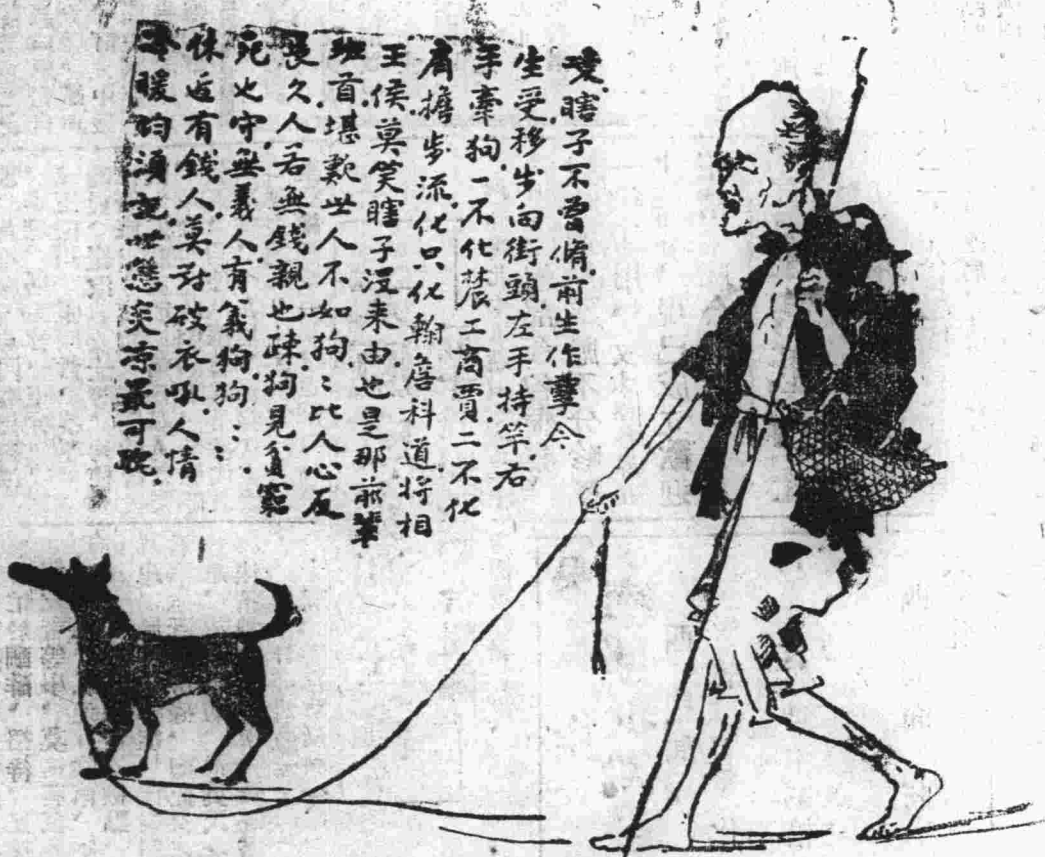 噯瞎子不曾脩前生作孽今
生受移步向街頭左手持竿右
手牽狗一不化農工商賈二不化
肩擔步流化只化翰詹科道將相
王侯莫笑瞎子沒来由也是那前輩
班首堪歎世人不如狗〻比人心反
長久人若無錢親也疎狗見貧窮
死也守無義人有義狗狗〻〻
休近有錢人莫對破衣吼人情
冷暖昀須記世態炎凉最可